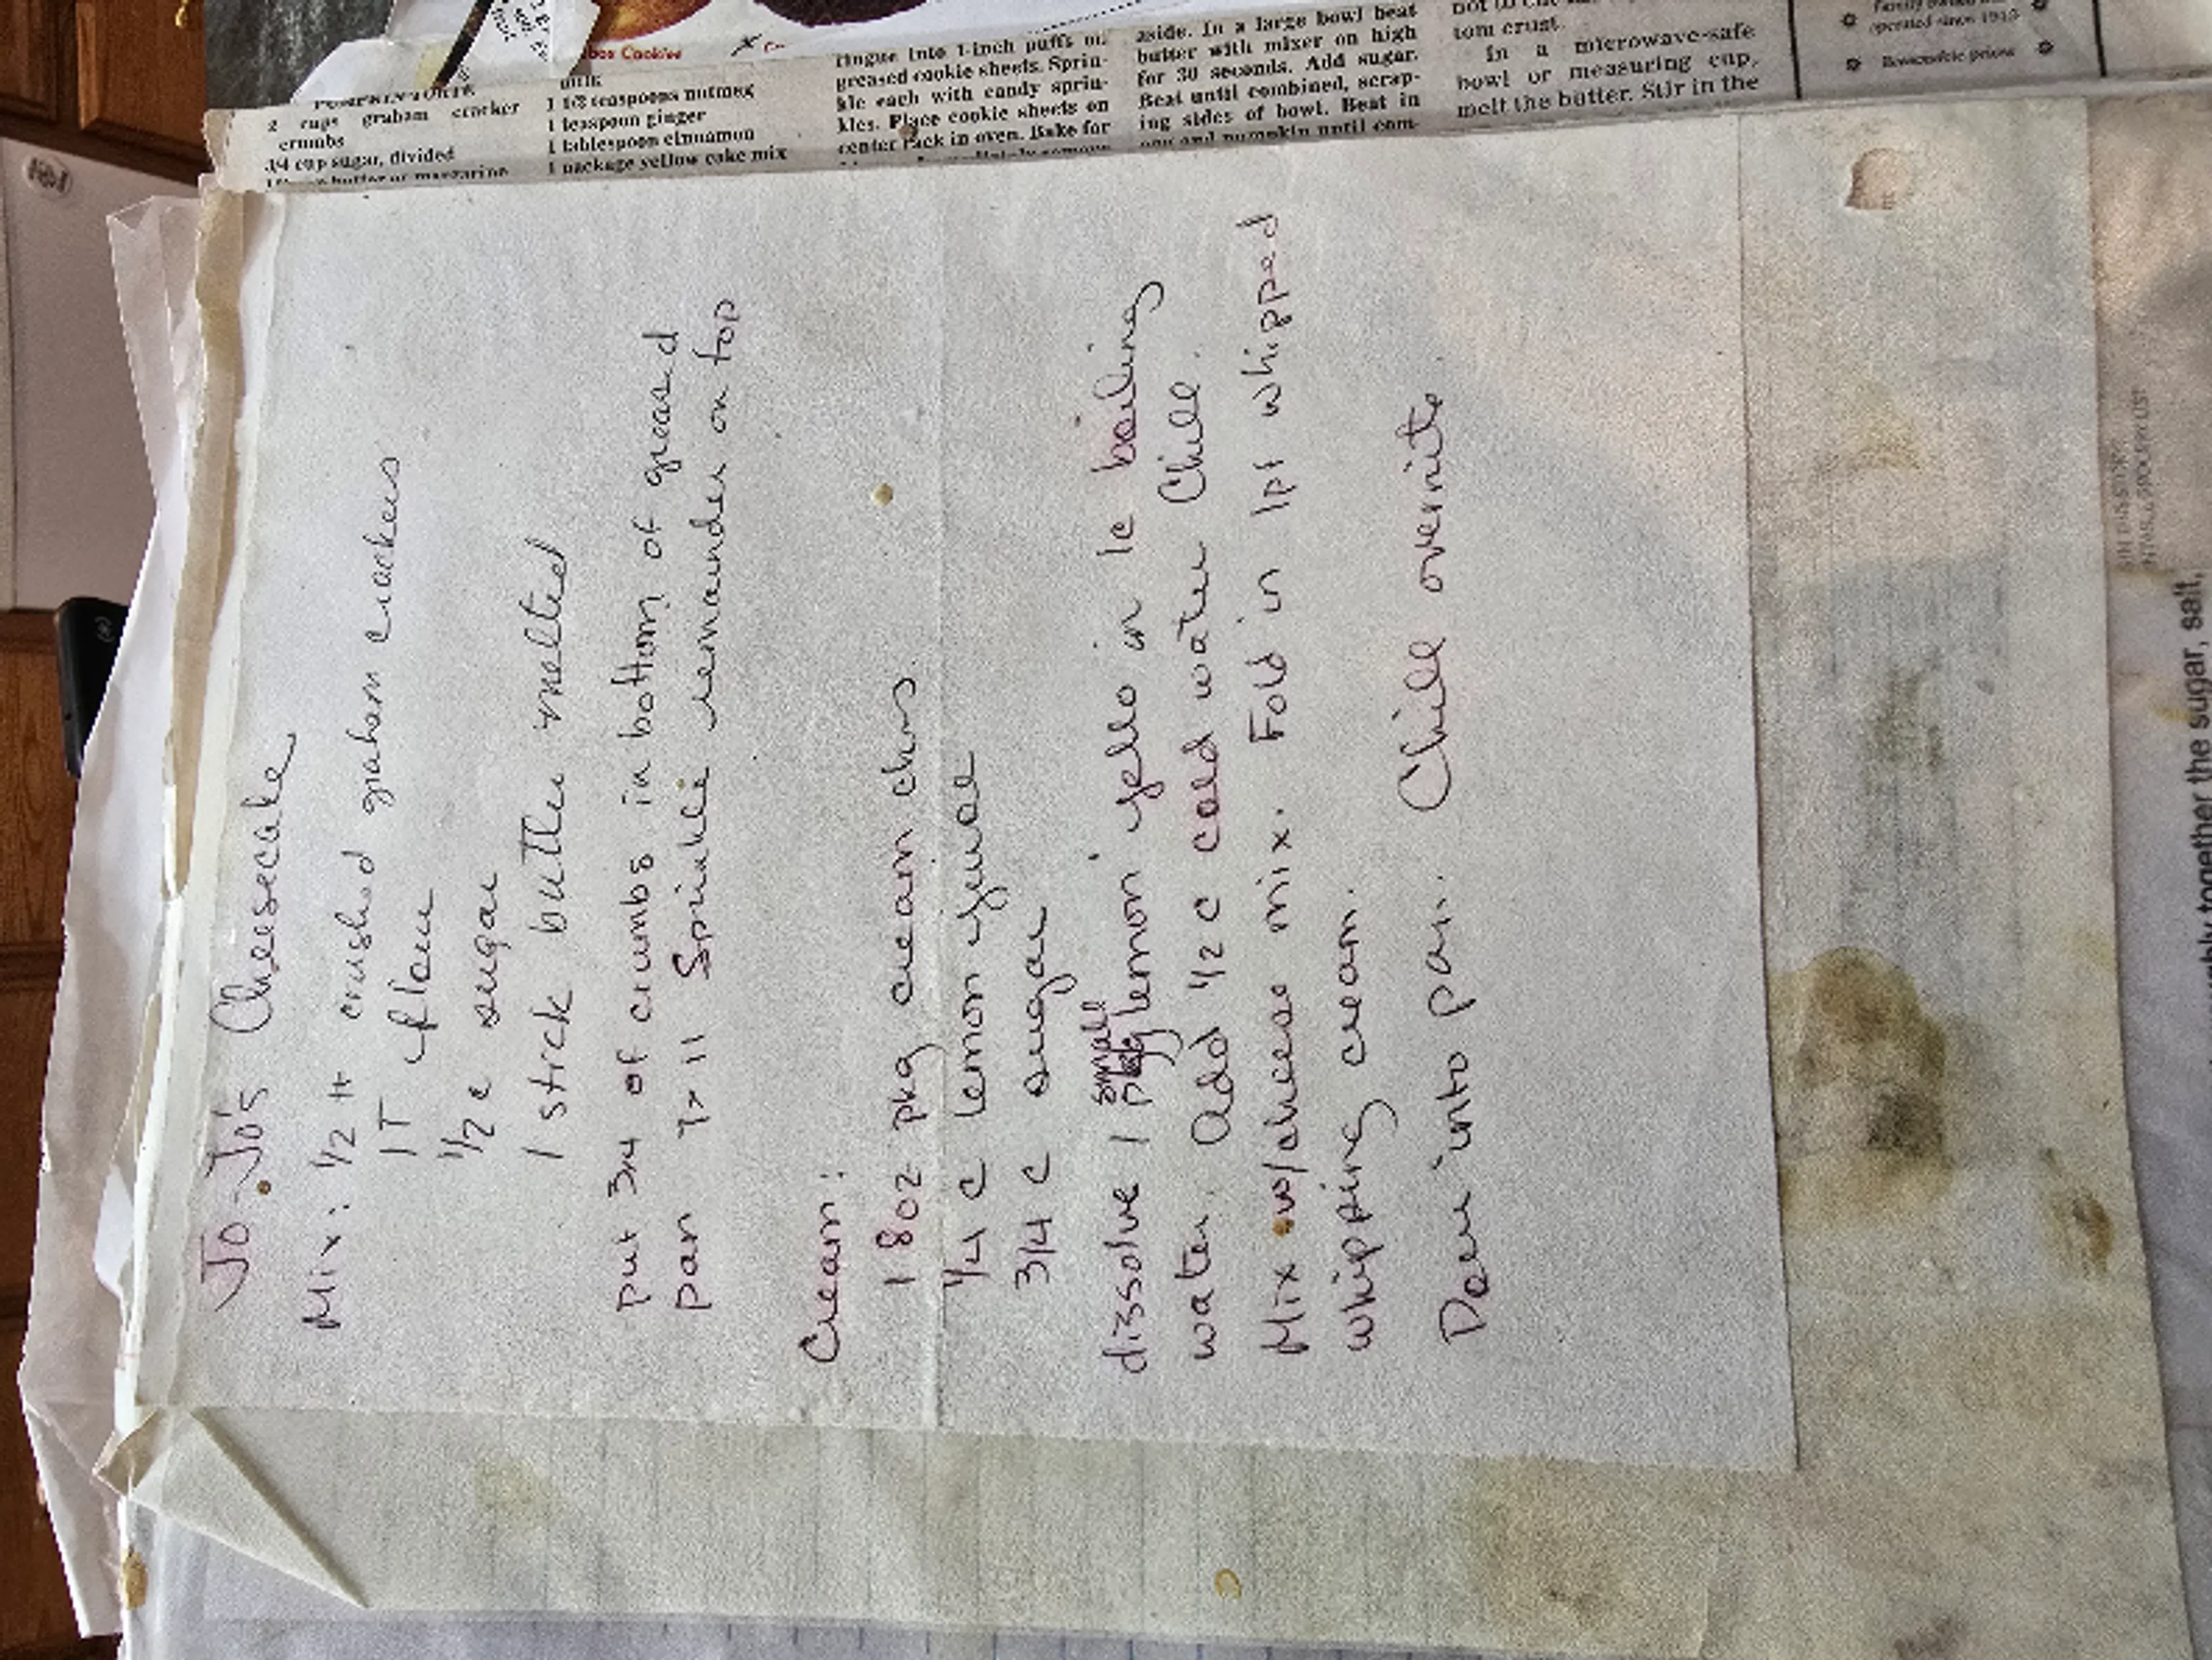 Jo-Jo's Cheesecake
Mix: 1/2 # crushed graham crackers
1T flour
1/2 c sugar
1 stick butter melted
put 3/4 of crumbs in bottom of greased
pan 7x11 Sprinkle remainder on top
Cream:
1 8oz pkg cream chs
1/4 c lemon juice
3/4 c sugar
small
dissolve 1 pkg lemon jello in 1c boiling
water. Add 1/2 c cold water Chill.
Mix w/cheese mix. Fold in 1pt whipped
whipping cream.
Pour into pan. Chill overnite
box Cookies
PUMPKIN TORTE
2 cups graham cracker
crumbs
3/4 cup sugar, divided
butter or margarine
milk
1 1/2 teaspoons nutmeg
1 teaspoon ginger
1 tablespoon cinnamon
1 package yellow cake mix
ringue into 1-inch puffs on
greased cookie sheets. Sprin-
kle each with candy sprin-
kles. Place cookie sheets on
center rack in oven. Bake for
aside. In a large bowl beat
butter with mixer on high
for 30 seconds. Add sugar.
Beat until combined, scrap-
ing sides of bowl. Beat in
and pumpkin until com-
tom crust.
In a microwave-safe
bowl or measuring cup,
melt the butter. Stir in the
operated since 1913
Reasonable prices
IN THIS STORY
together the sugar, salt,